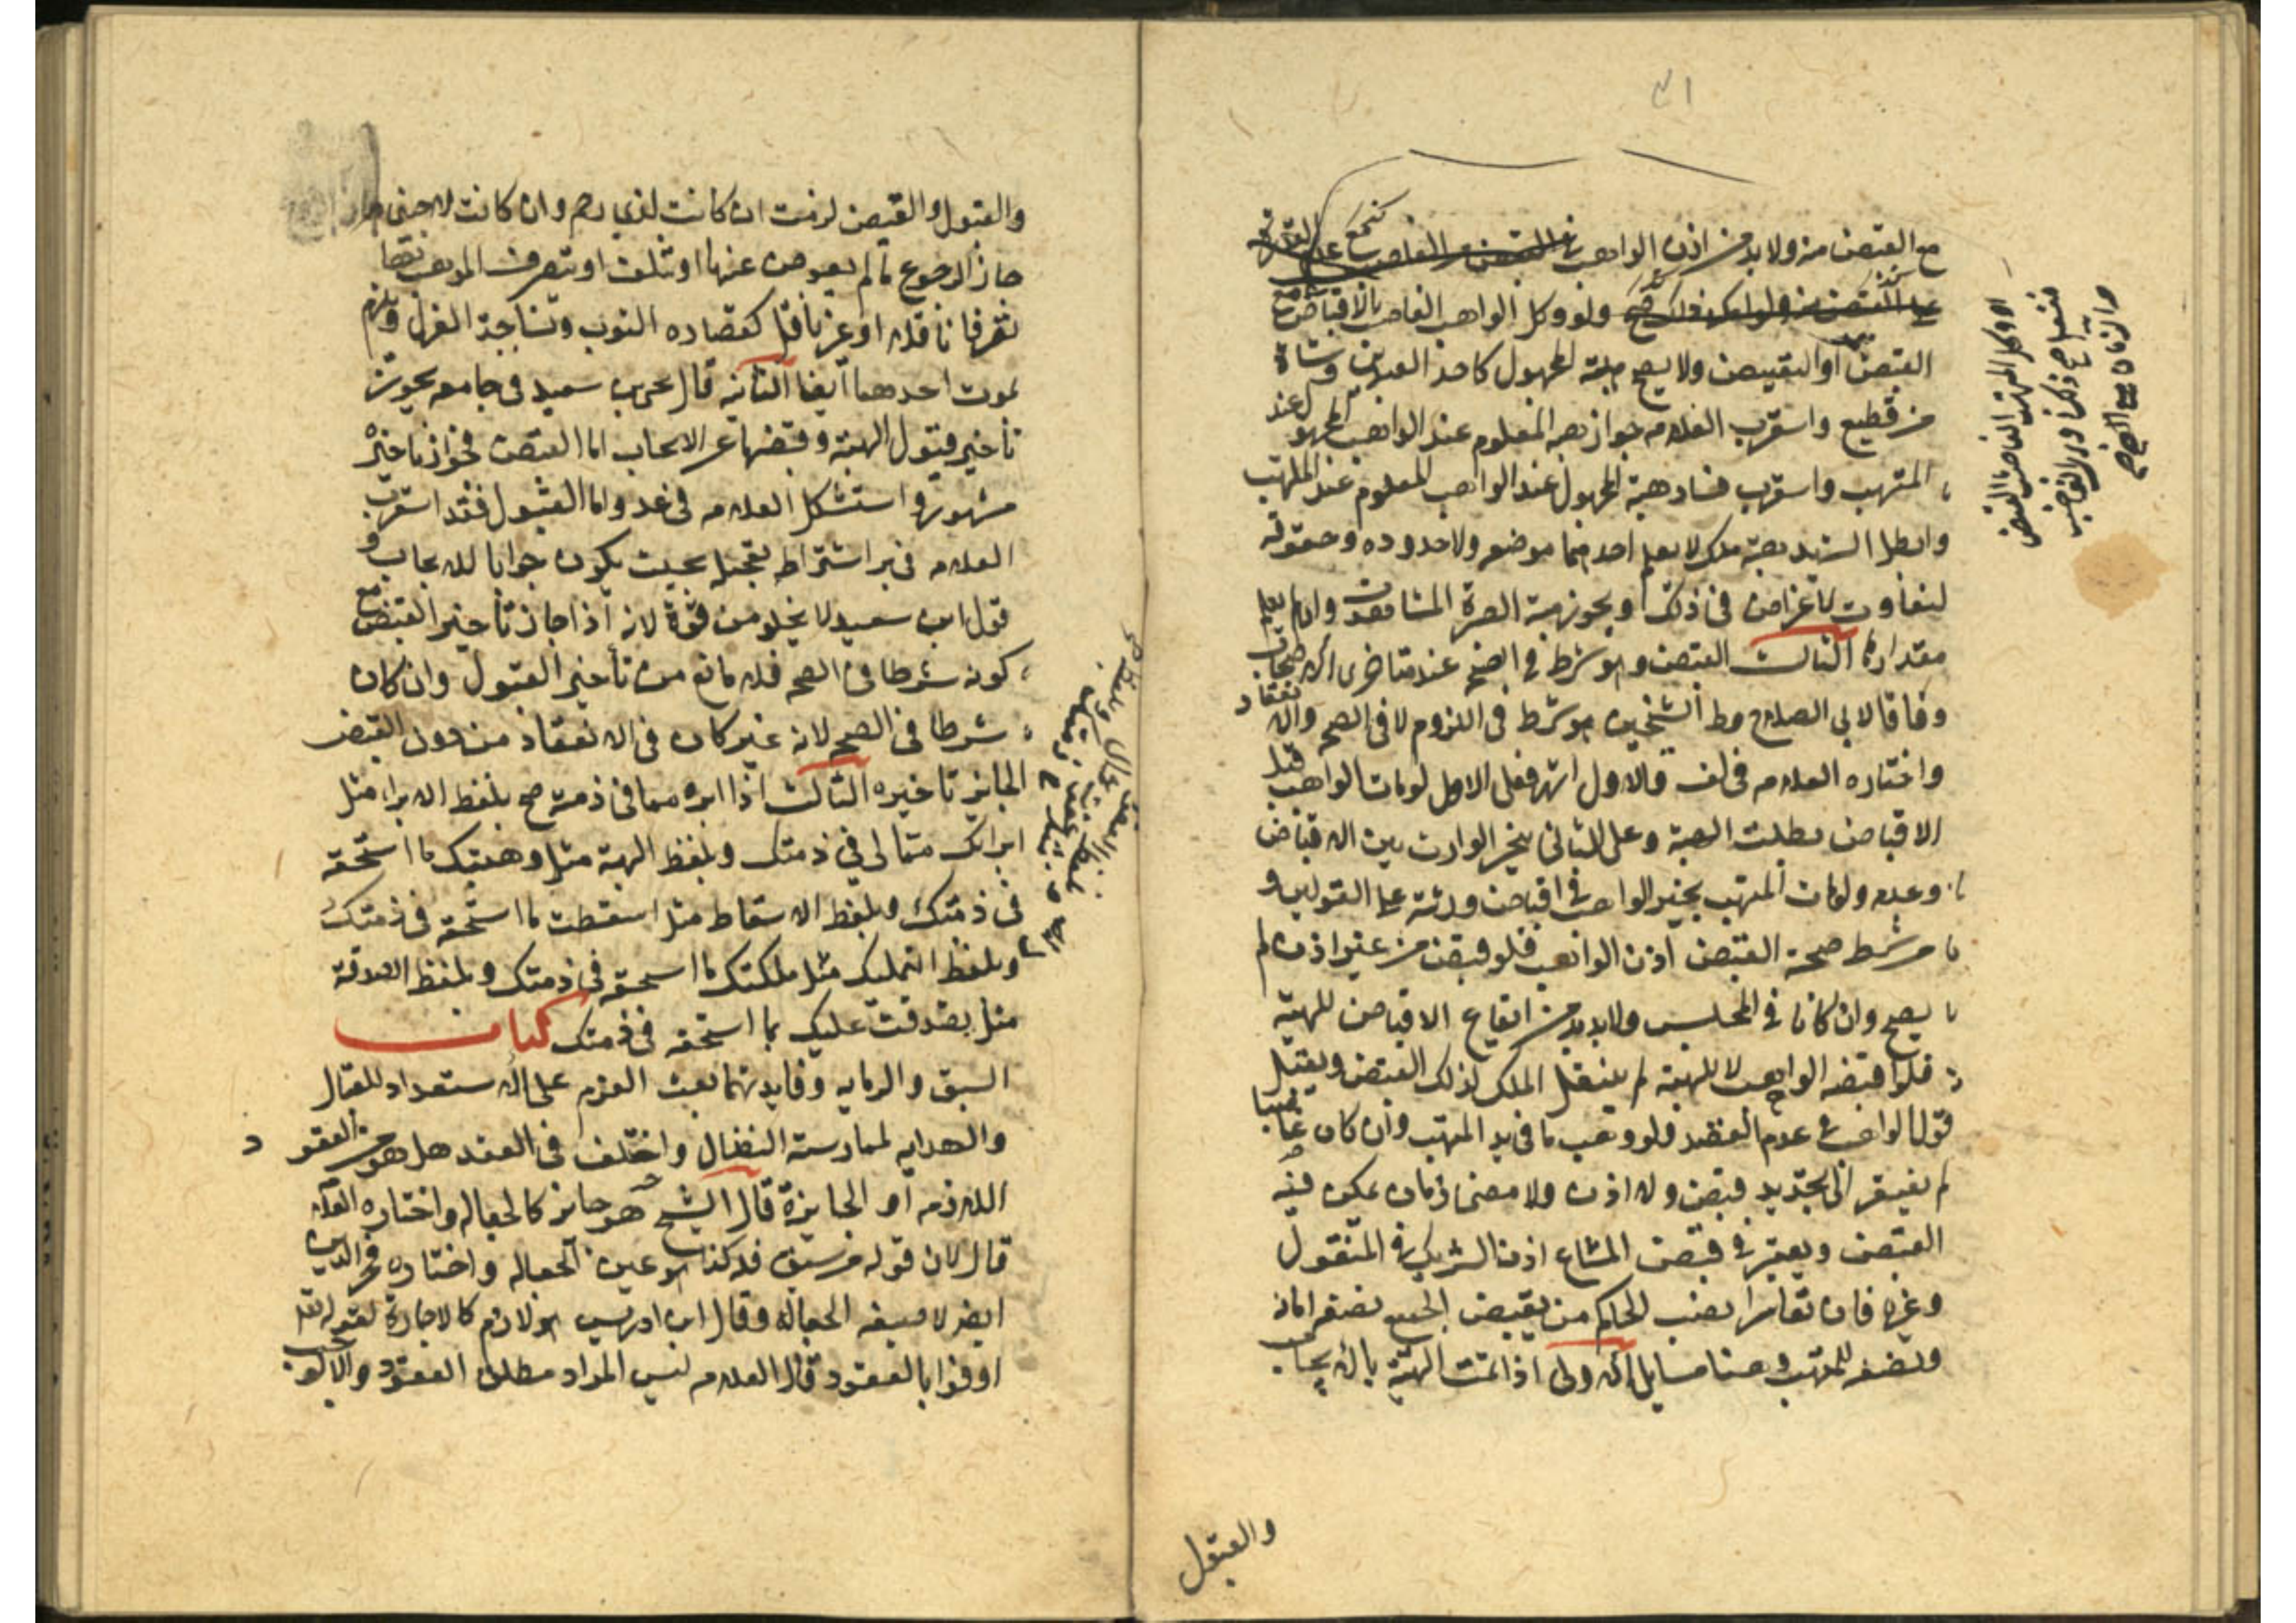 مع القبض منه ولا بد من اذن الواهب في
ولو وكل الواهب الغاصب بالاقباض صح
القبض او التقبيض ولا يصح هبة المجهول كاحد العبدين وشاة
من قطيع واستقرب العلامه جواز هبة المعلوم عند الواهب المجهول عند
المتهب واستقرب فساد هبة المجهول عند الواهب المعلوم عند المتهب
وابطل الشهيد هبة ملك لا يعلم احدهما موضعه ولا حدوده وحقوقه
لتفاوت الاغراض في ذلك ويجوز هبة الصبرة المشاهدة وان لم يعلم
مقدارها الثالث القبض وهو شرط في الصحه عند متاخرى الاصحاب
وفاقا لابى الصلاح وط الشيخين هو شرط فى اللزوم لا فى الصحه والانعقاد
واختاره العلامه فى لف والاول اشهر فعلى الاول لو مات الواهب قبل
الاقباض بطلت الهبة وعلى الثانى يتخير الوارث بين الاقباض
وعدمه ولو مات المتهب يتخير الواهب في اقباض ورثته على القولين و
من شرط صحة القبض اذن الواهب فلو قبض من غير اذن لم
يصح وان كانا في المجلس ولا بد من ايقاع الاقباض للهبة
فلو اقبضه الواهب لا للهبة لم ينتقل الملك بذلك القبض ويقبل
قول الواهب في عدم القصد فلو وهب ما في يد المتهب وان كان غاصبا
لم يفتقر الى تجديد قبض ولا اذن ولا مضى زمان يمكن فيه
القبض ويعتبر في قبض المشاع اذن الشريك في المنقول
وغيره فان تعاسرا نصب الحاكم من يقبض الجميع نصفه امانة
ونصفه للمتهب وهنا مسايل الاولى اذا تمت الهبة بالايجاب
والقبول
والقبول والقبض لزمت ان كانت لذى رحم وان كانت لاجنبى
جاز الرجوع ما لم يعوض عنها او تتلف او يتصرف المتهب فيها
تصرفا ناقلا او غير ناقل كقصاره الثوب ونساجة الغزل ويلزم
بموت احدهما ايضا الثانيه قال يحيى بن سعيد فى جامعه يجوز
تاخير قبول الهبة وقبضها عن الايجاب اما القبض فجواز تاخيره
مشهور واستشكل العلامه فى عد واما القبول فقد استقرب
العلامه فى ير اشتراط تعجيله بحيث يكون جوابا للايجاب و
قول ابن سعيد لا يخلو من قوة لانه اذا جاز تاخير القبض مع
كونه شرطا فى الصحه فلا مانع من تاخير القبول وان كان
شرطا فى الصحه لانه غير كاف فى الانعقاد من دون القبض
الجايز تاخيره الثالث اذا ابره مما فى ذمته صح بلفظ الابراء مثل
ابراتك مما لى في ذمتك وبلفظ الهبة مثل وهبتك ما استحقه
فى ذمتك وبلفظ الاسقاط مثل اسقطت ما استحقه فى ذمتك
وبلفظ التمليك مثل ملكتك ما استحقه فى ذمتك وبلفظ الصدقة
مثل تصدقت عليك بما استحقه فى ذمتك كتاب
السبق والرمايه وفايدتهما بعث العزم على الاستعداد للقتال
والهدايه لممارسته النضال واختلف فى العقد هل هو من العقود
اللازمه او الجايزة قال الشيخ هو جايز كالجعاله واختاره العلامه
قال لان قوله من سبق فله كذا هو عين الجعاله واختاره فخر الدين
ايضا لا صيغه الجعاله وقال ابن ادريس هو لازم كالاجارة لقوله تعالى
اوفوا بالعقود قال العلامه ليس المراد مطلق العقود والا لوجب